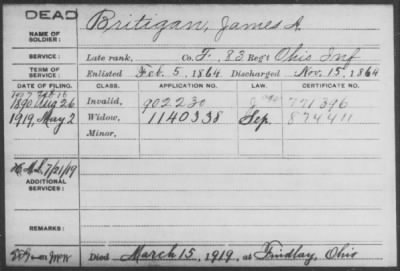 DEAD
NAME OF SOLDIER: Britigan, James A.
SERVICE: Late rank, Co. F, 83 Reg't Ohio Inf
TERM OF SERVICE: Enlisted Feb. 5, 1864 Discharged Nov. 15, 1864
DATE OF FILING. CLASS. APPLICATION NO. LAW. CERTIFICATE NO.
1890 Aug 26 Invalid, 902230 771396
1919, May 2 Widow, 1140338 Sep. 874411
Minor,
7/21/19
ADDITIONAL SERVICES:
REMARKS:
Died March 15, 1919, at Findlay, Ohio